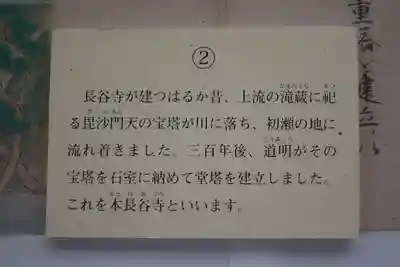 ②
長谷寺が建つはるか昔、上流の滝蔵に祀
る毘沙門天の宝塔が川に落ち、初瀬の地に
流れ着きました。三百年後、道明がその
宝塔を石室に納めて堂塔を建立しました。
これを本長谷寺といいます。